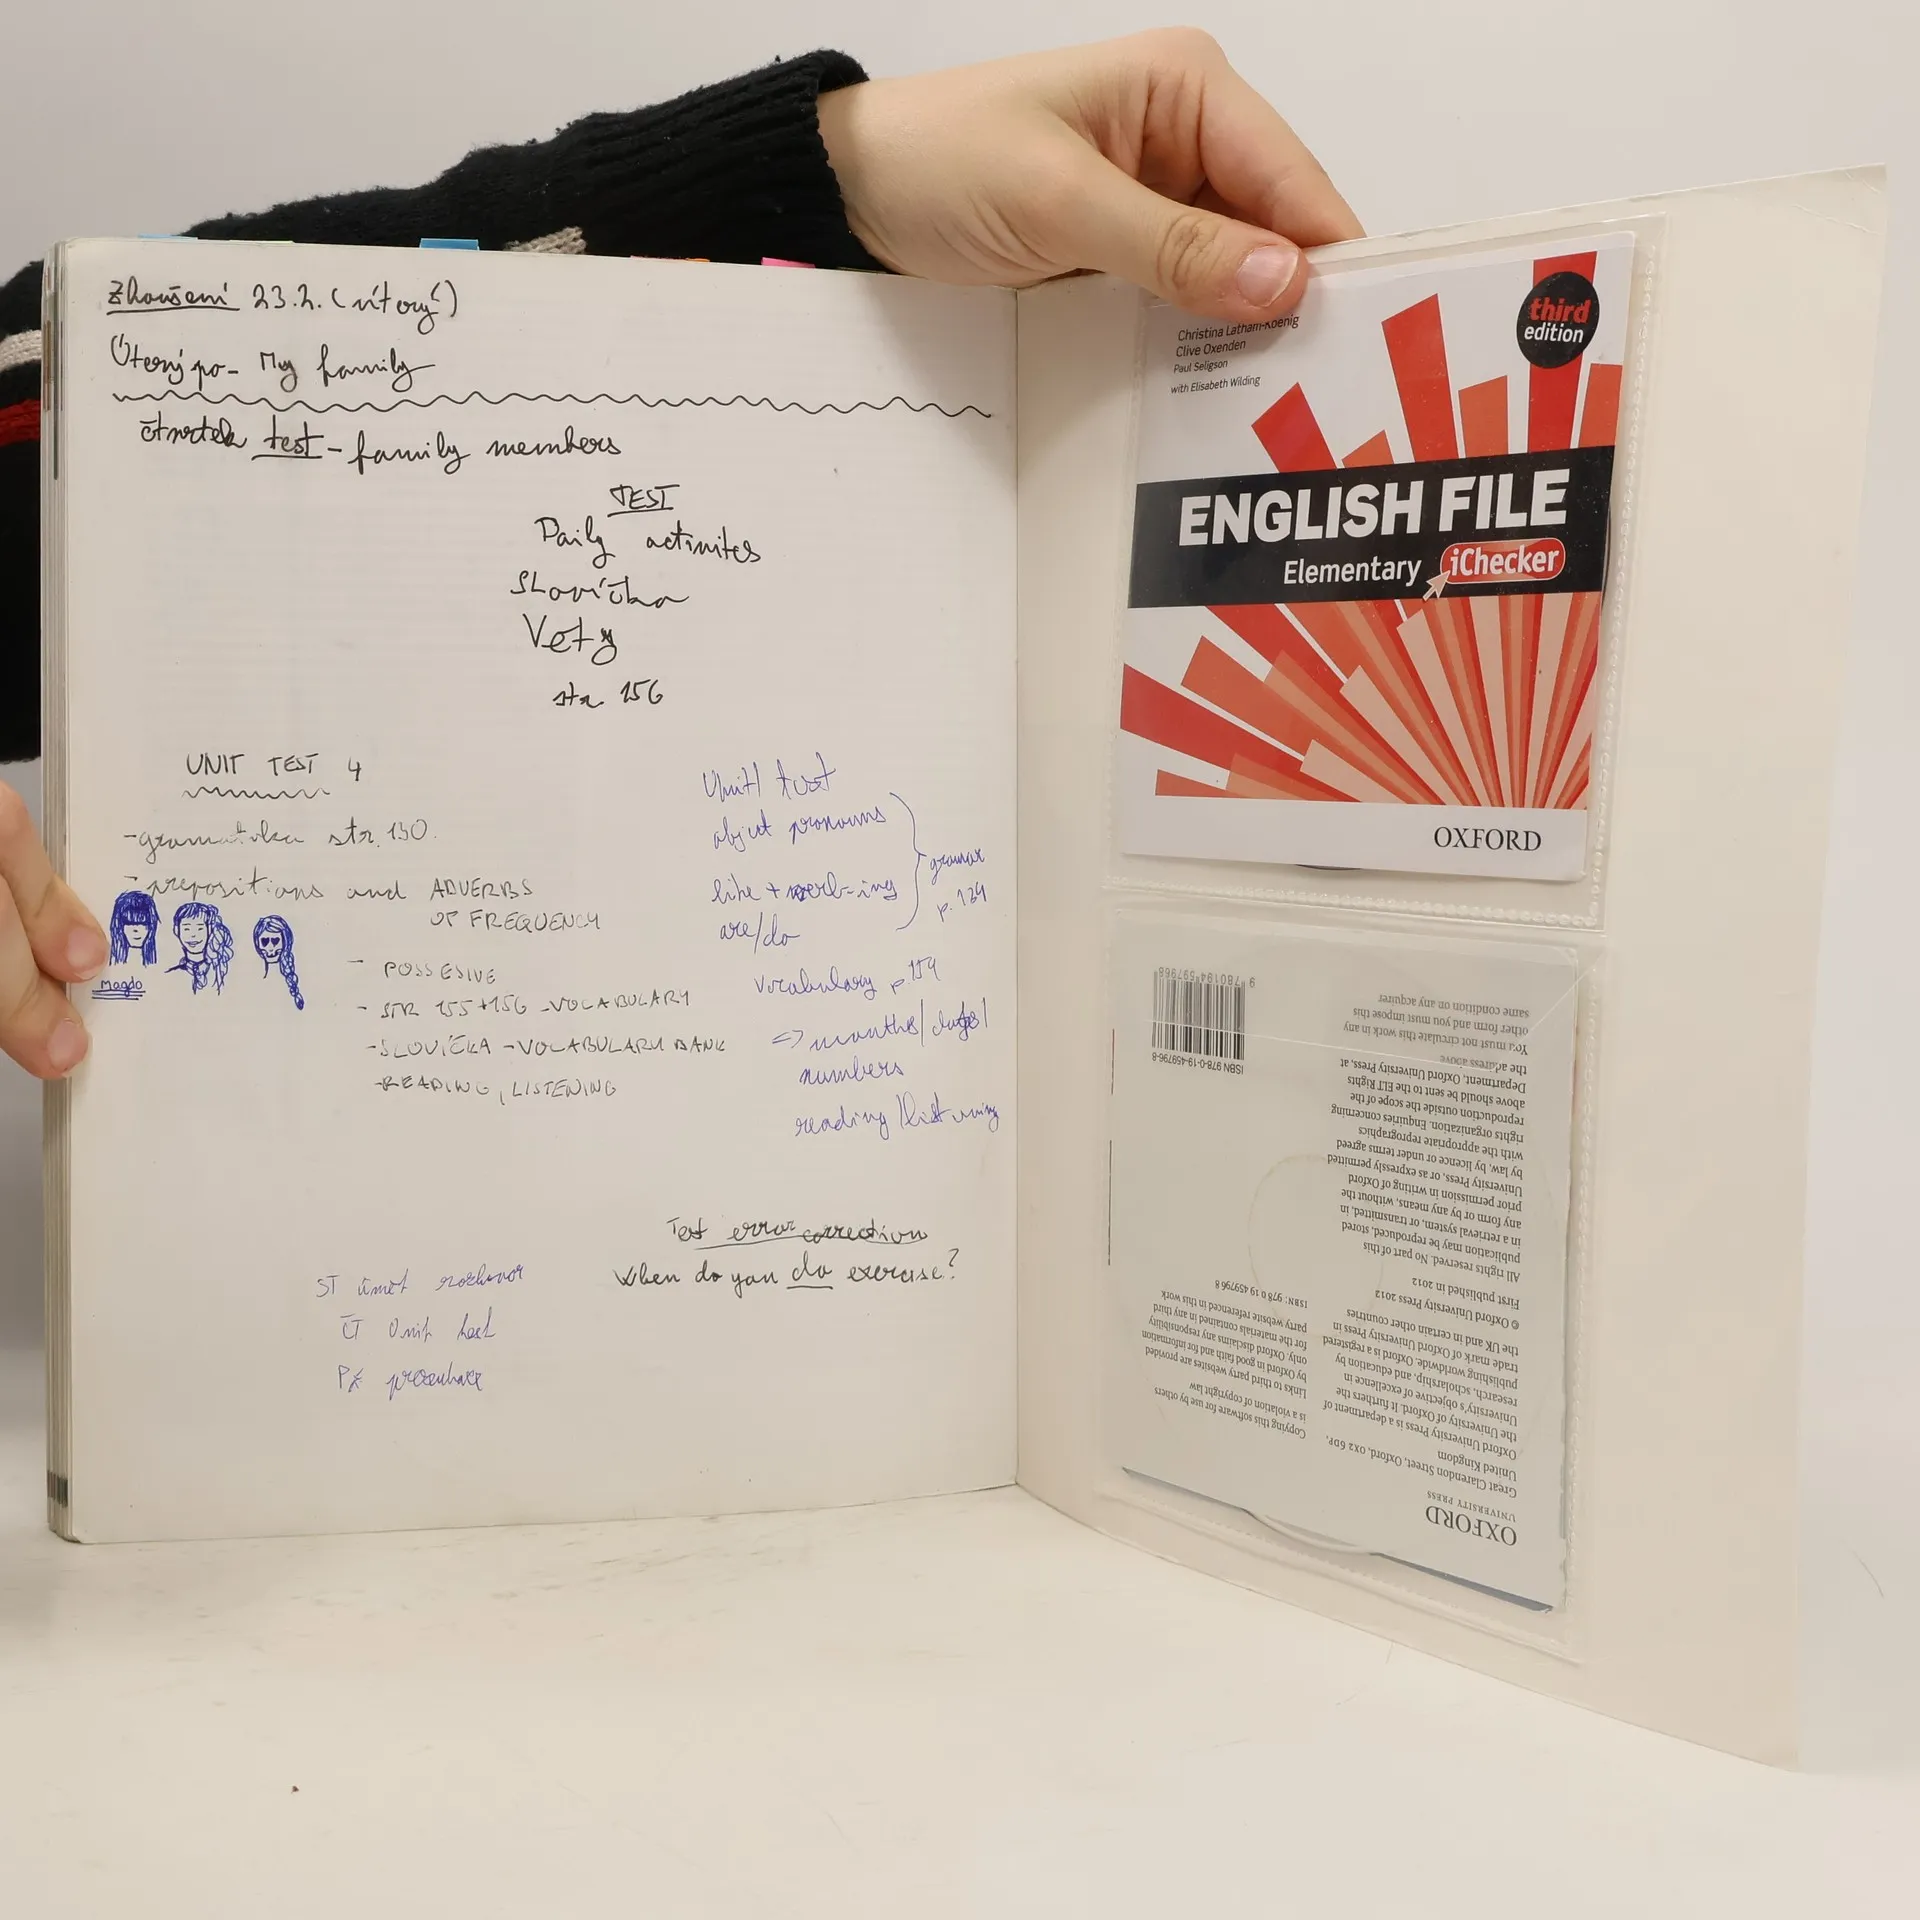 Zkoušení 23.2. (úterý)
Úterý po- My family
čtvrtek test - family members
TEST
Daily activites
Slovíčka
Věty
str. 156
UNIT TEST 4
-gramatika str. 130.
- prepositions and ADVERBS
OF FREQUENCY
Magdo
- POSSESIVE
- STR 155+156 -VOCABULARY
-SLOVÍČKA -VOCABULARY BANK
-READING, LISTENING
Unit1 test
object pronouns
like + verb-ing
are/do
gramar
p. 134
vocabulary p. 154
=> months/ dates/
numbers
reading / listening
Test error correction
When do you do exercise?
ST umět rozhovor
ČT Unit test
Christina Latham-Koenig
Clive Oxenden
Paul Seligson
with Elisabeth Wilding
third
edition
ENGLISH FILE
Elementary iChecker
OXFORD
OXFORD
UNIVERSITY PRESS
Great Clarendon Street, Oxford, OX2 6DP,
United Kingdom
Oxford University Press is a department of
the University of Oxford. It furthers the
University's objective of excellence in
research, scholarship, and education by
publishing worldwide. Oxford is a registered
trade mark of Oxford University Press in
the UK and in certain other countries
© Oxford University Press 2012
First published in 2012
All rights reserved. No part of this
publication may be reproduced, stored
in a retrieval system, or transmitted, in
any form or by any means, without the
prior permission in writing of Oxford
University Press, or as expressly permitted
by law, by licence or under terms agreed
with the appropriate reprographics
rights organization. Enquiries concerning
reproduction outside the scope of the
above should be sent to the ELT Rights
Department, Oxford University Press, at
the address above
You must not circulate this work in any
other form and you must impose this
same condition on any acquirer
Copying this software for use by others
is a violation of copyright law
Links to third party websites are provided
by Oxford in good faith and for information
only. Oxford disclaims any responsibility
for the materials contained in any third
party website referenced in this work
ISBN: 978 0 19 459796 8
ISBN 978-0-19-459796-8
9 780194 597968